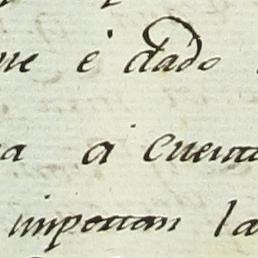 é dado
a cuenta
importan la